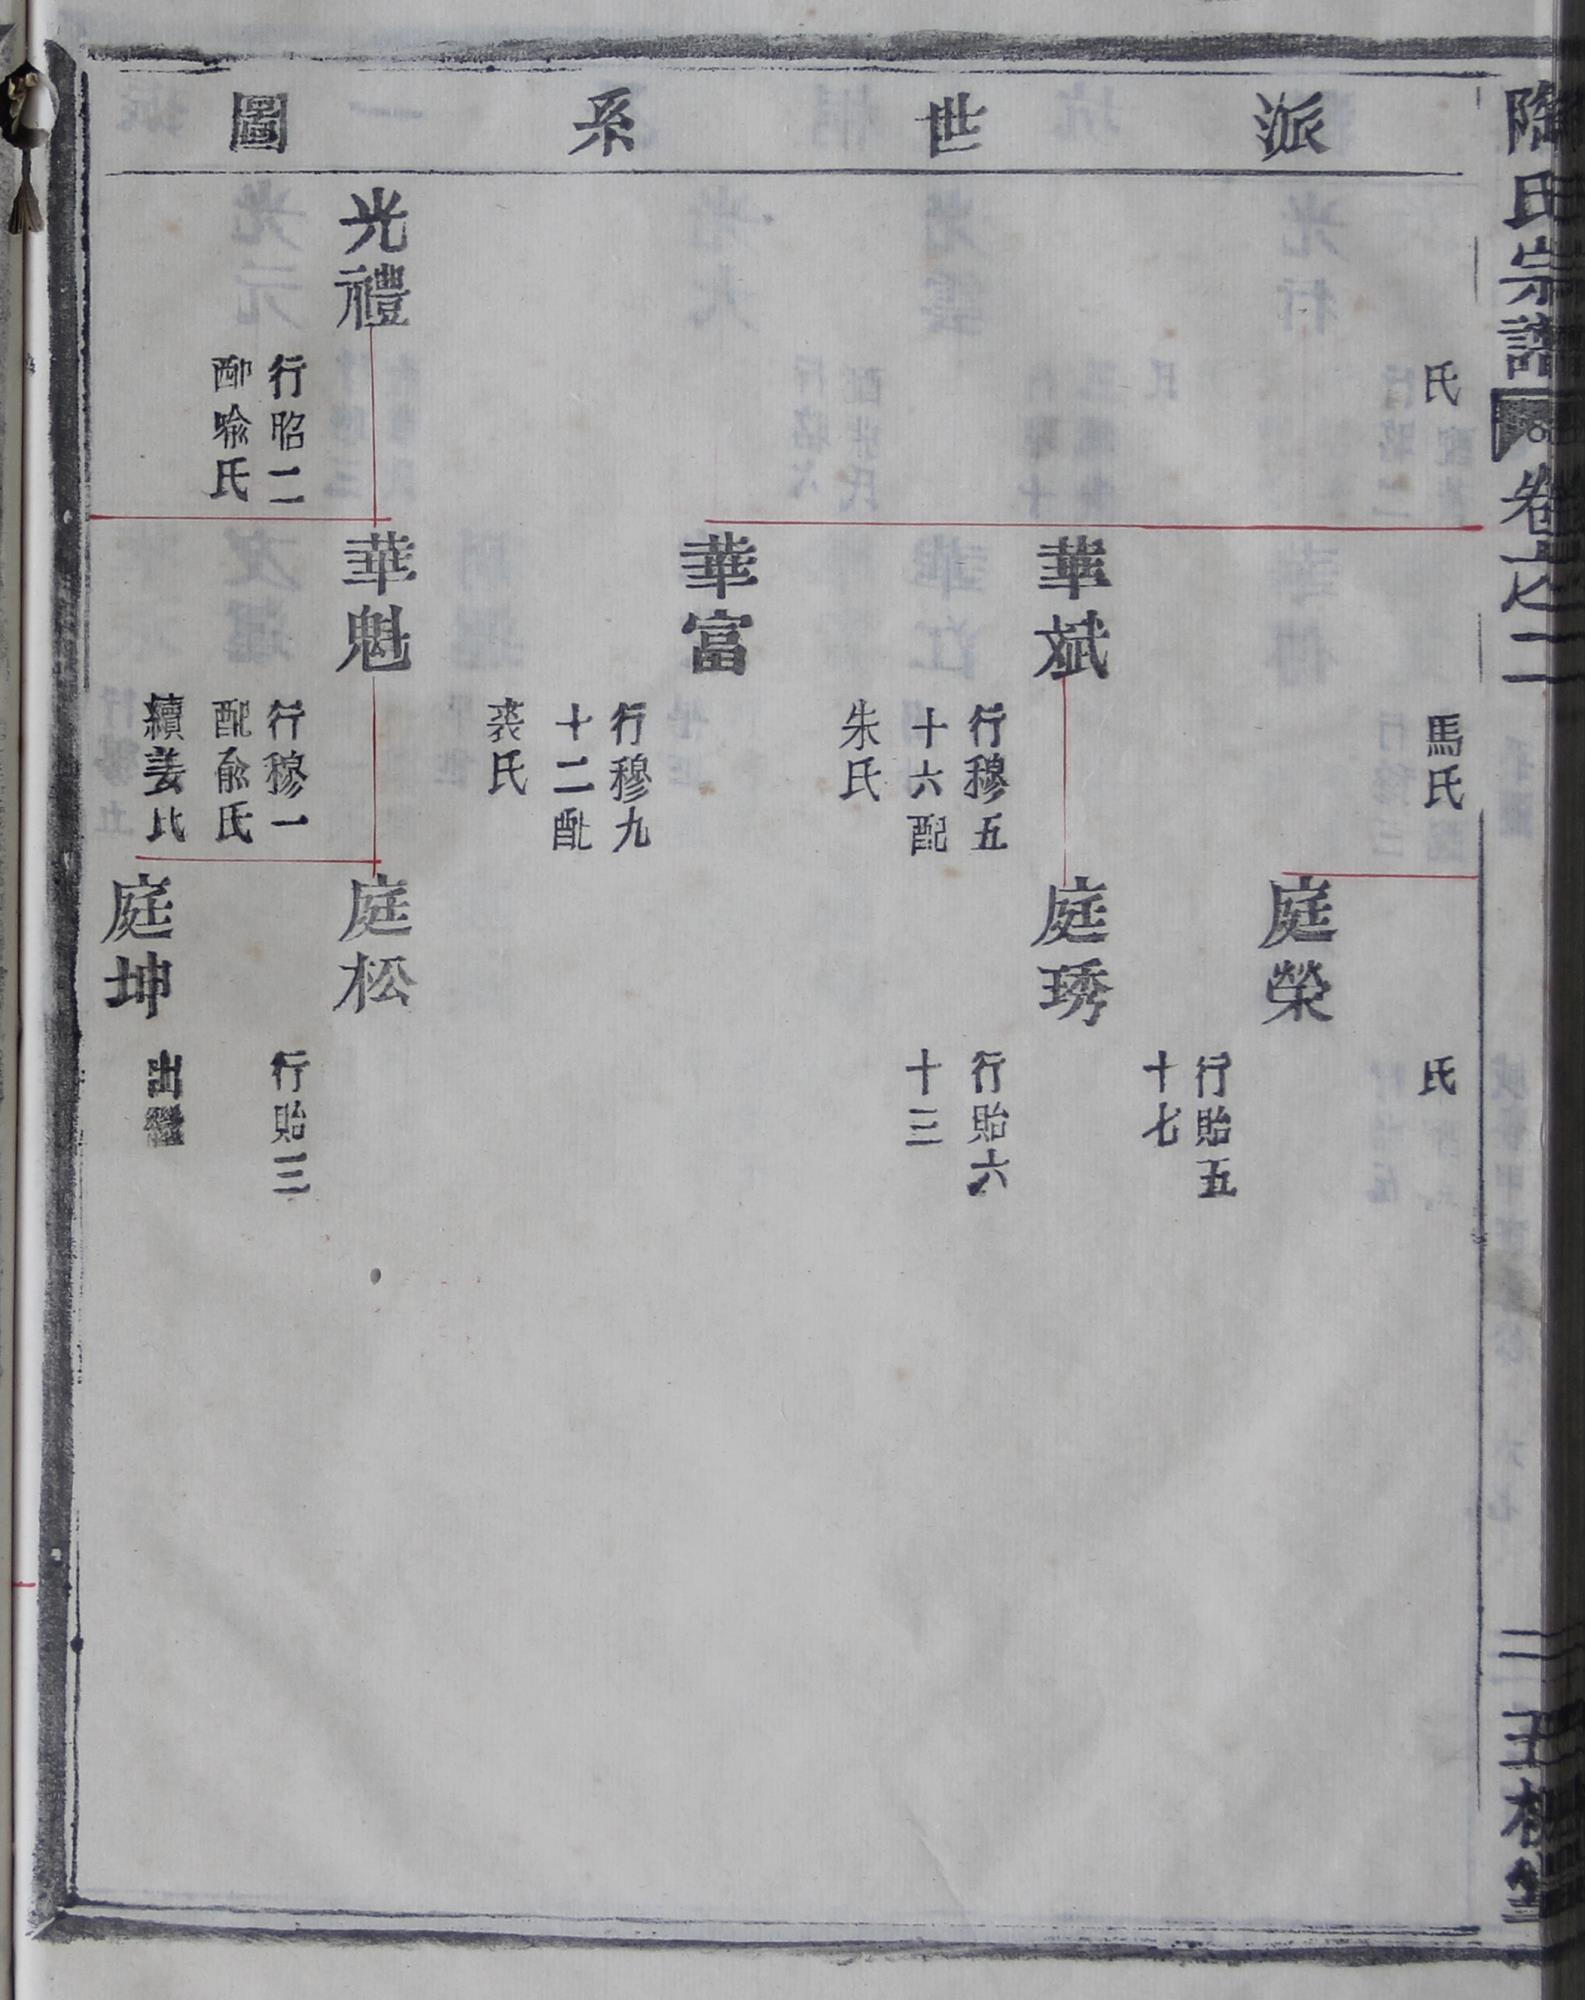 陶氏宗譜
卷之二
二
五柳堂
派世系圖
氏
光禮
行昭二
配喻氏
馬氏
華斌
行穆五
十六配
朱氏
華富
行穆九
十二配
裘氏
華魁
行穆一
配俞氏
續姜氏
氏
庭榮
行貽五
十七
庭琇
行貽六
十三
庭松
行貽三
庭坤
出繼